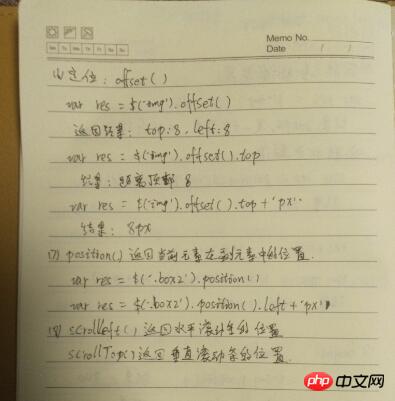 Memo No.
Date / /
Mo Tu We Th Fr Sa Su
定位: offset()
var res = $('img').offset()
返回结果: top:8, left:8
var res = $('img').offset().top
结果: 距离顶部 8
var res = $('img').offset().top + 'px'
结果: 8px
(7) position() 返回当前元素在父元素中的位置.
var res = $('.box2').position()
var res = $('.box2').position().left + 'px'
(8) scrollLeft() 返回水平滚动条的位置
scrollTop() 返回垂直滚动条的位置.
php 中文网